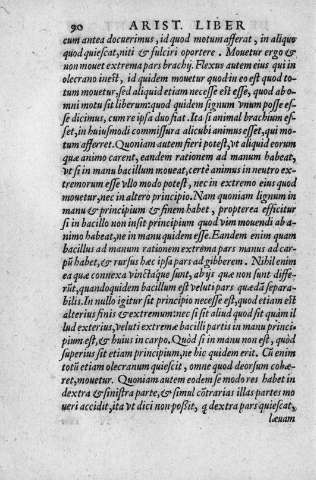 90 ARIST. LIBER
cum antea docuerimus, id quod motum afferat, in aliquo
quod quiescat, niti & fulciri oportere. Mouetur ergo &
non mouet extrema pars brachij. Flexus autem eius qui in
olecrano inest, id quidem mouetur quod in eo est quod to-
tum mouetur, sed aliquid etiam necesse est esse, quod ab o-
mni motu sit liberum: quod quidem signum vnum posse es-
se dicimus, cum re ipsa duo fiat. Ita si animal brachium es-
set, in huiusmodi commissura alicubi animus esset, qui mo-
tum afferret. Quoniam autem fieri potest, vt aliquid eorum
quæ animo carent, eandem rationem ad manum habeat,
vt si in manu bacillum moueat, certè animus in neutro ex-
tremorum esse vllo modo potest, nec in extremo eius quod
mouetur, nec in altero principio. Nam quoniam lignum in
manu & principium & finem habet, propterea efficitur
si in bacillo non insit principium quod vim mouendi ab a-
nimo habeat, ne in manu quidem esse. Eandem enim quam
bacillus ad manum rationem extrema pars manus ad car-
pũ habet, & rursus hæc ipsa pars ad gibberem. Nihil enim
ea quæ connexa vinctáque sunt, ab ijs quæ non sunt diffe-
rũt, quandoquidem bacillum est veluti pars quædã separa-
bilis. In nullo igitur sit principio necesse est, quod etiam est
alterius finis & extremum: nec si sit aliud quod sit quàm il
lud exterius, veluti extremæ bacilli partis in manu princi-
pium est, & huius in carpo. Quòd si in manu non est, quòd
superius sit etiam principium, ne hic quidem erit. Cũ enim
totũ etiam olecranum quiescit, omne quod deorsum cohæ-
ret, mouetur. Quoniam autem eodem se modo res habet in
dextra & sinistra parte, & simul cõtrarias illas partes mo
ueri accidit, ita vt dici non possit, q dextra pars quiescat,
læuam